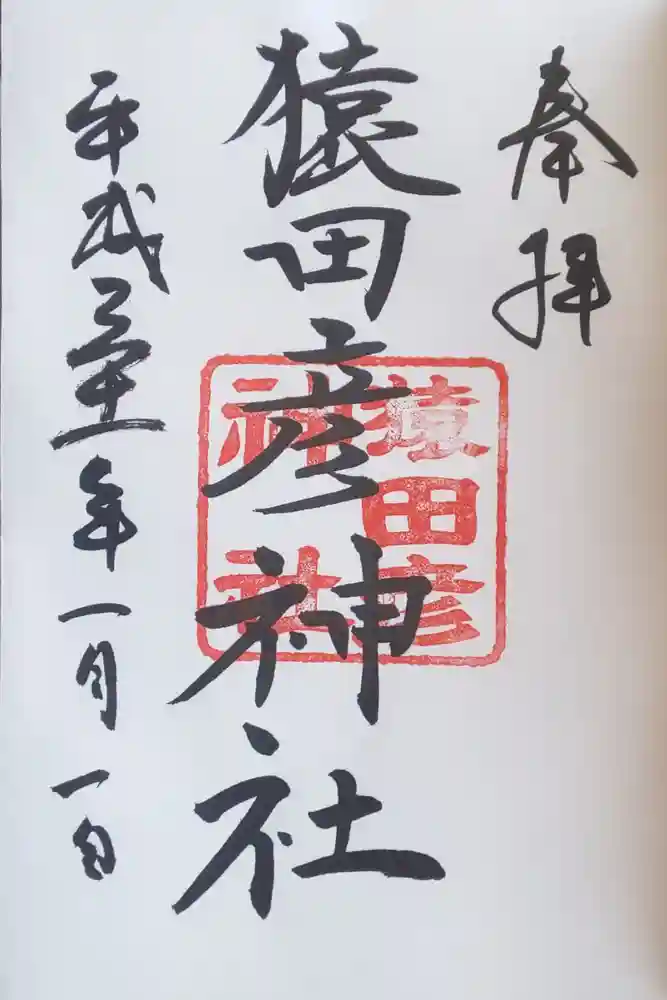 奉拝
猿田彦神社
平成三十一年一月一日
猿田彦
神社